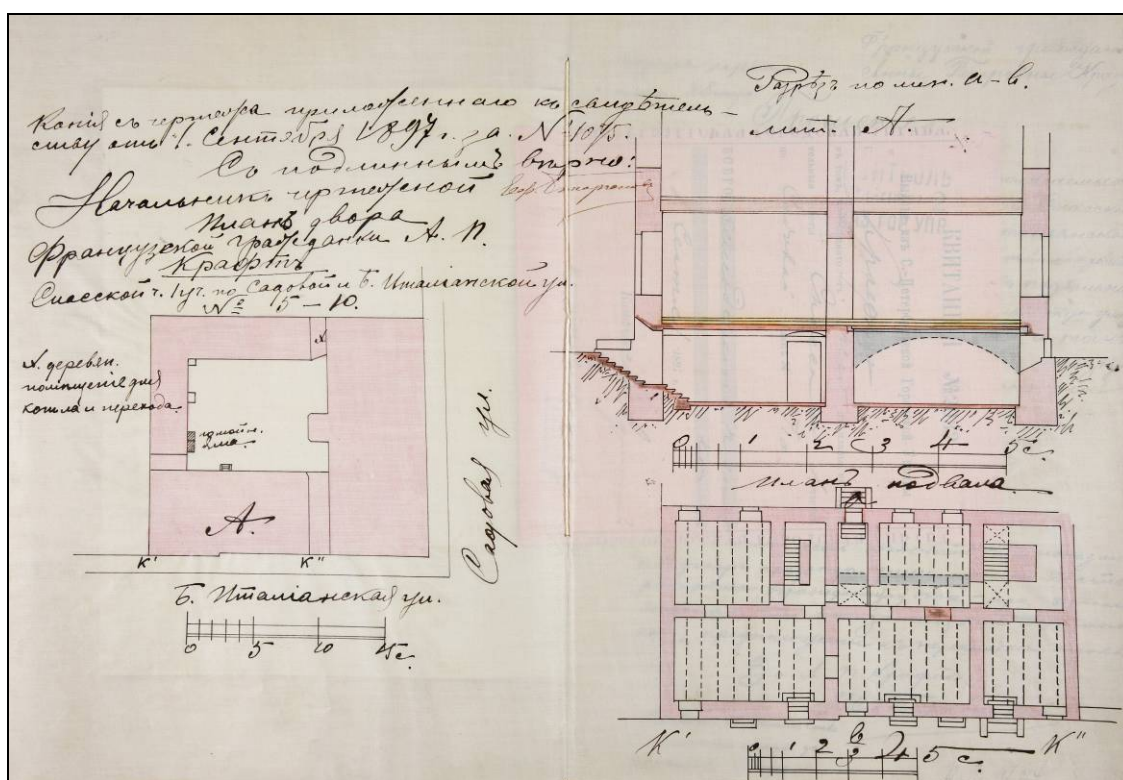 Копія съ чертежа приложеннаго къ свидѣтель-
ству отъ 1. Сентября 1897 г. за №1075.
Съ подлиннымъ вѣрно:
Начальникъ чертежной
Планъ двора
Французской гражданки А. П.
Крафтъ
Спасской ч. 1 уч. по Садовой и Б. Италіанской ул.
№ 5–10.
А. деревян.
помѣщеніе для
котла и перехода.
помойн.
яма.
А.
К' К"
Б. Италіанская ул.
0 5 10 15 с.
Садовая ул.
Разрѣзъ по лин. а–в.
лит. А.
0 1 2 3 4 5 с.
Планъ подвала.
а
К' в К"
0 1 2 3 4 5 с.